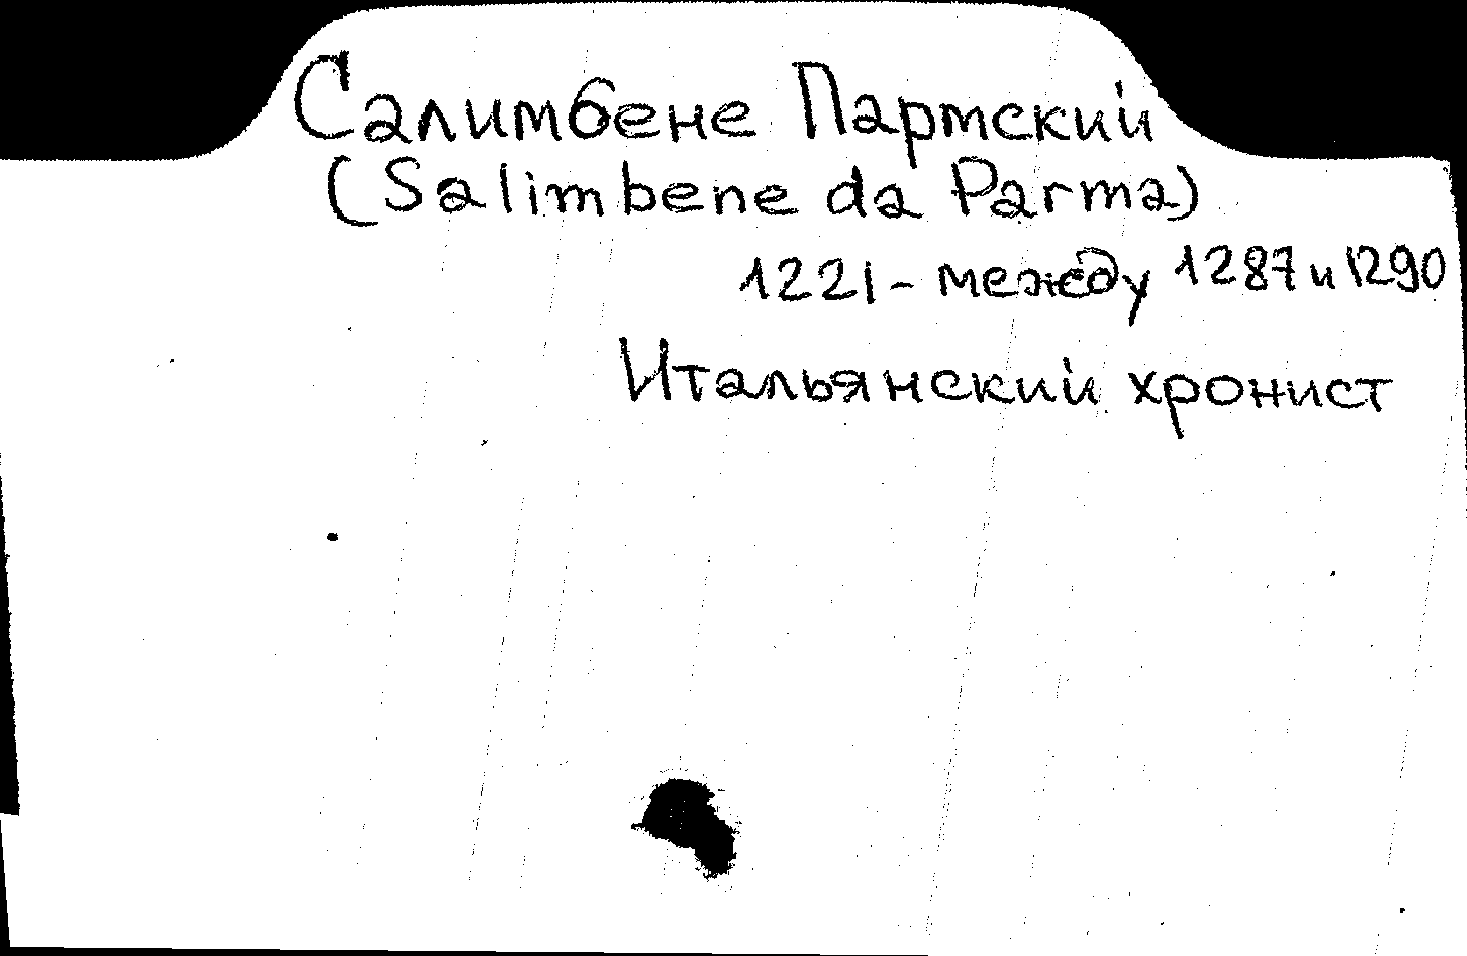 Салимбене Пармский
(Salimbene da Parma)
1221 - между 1287 и 1290
Итальянский хронист